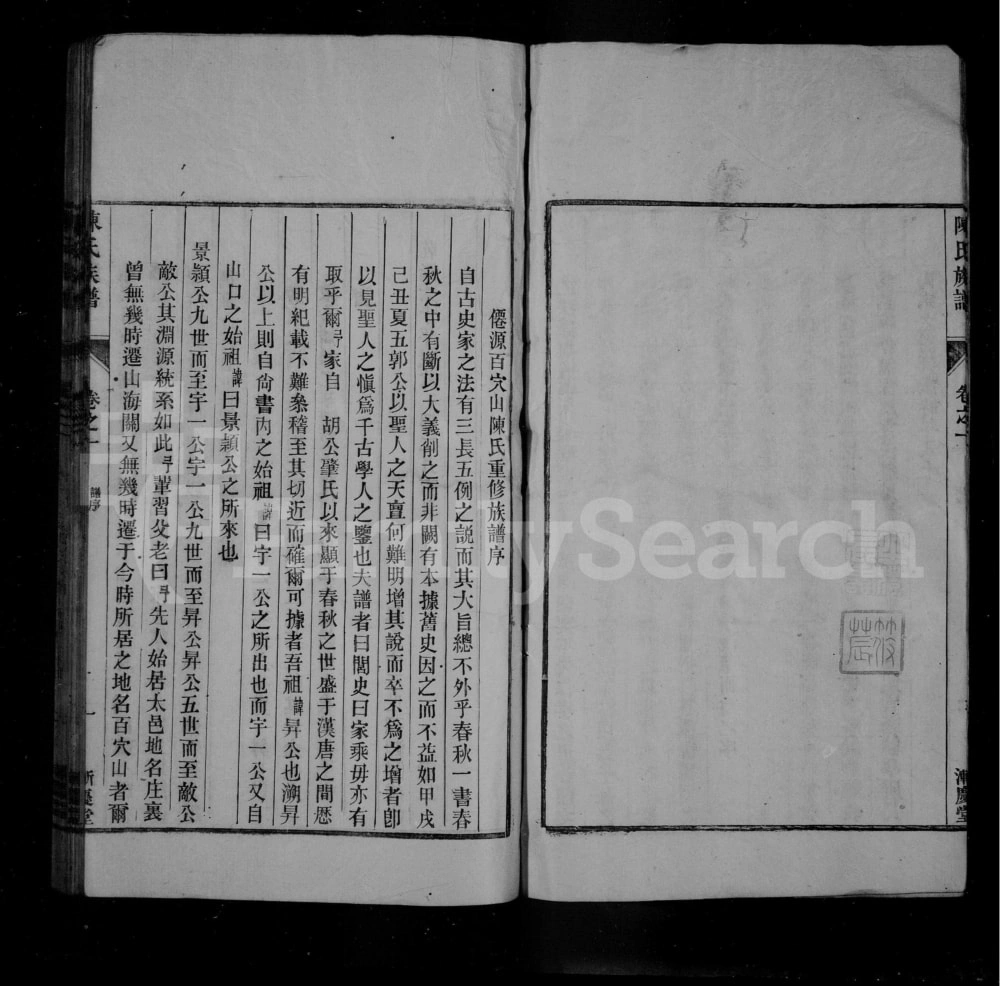 陳氏族譜
卷之一
慶堂
僊源百穴山陳氏重修族譜序
自古史家之法有三長五例之説而其大旨總不外乎春秋一書春
秋之中有斷以大義削之而非闕有本據舊史因之而不益如甲戌
己丑夏五郭公以聖人之天亶何難明增其說而卒不爲之增者卽
以見聖人之愼爲千古學人之鑒也夫譜者曰閭史曰家乘毋亦有
取乎爾予家自 胡公肇氏以來顯于春秋之世盛于漢唐之間歷
有明紀載不難叅稽至其切近而確爾可據者吾祖諱昇公也溯昇
公以上則自尙書丙之始祖諱曰宇一公之所出也而宇一公又自
山口之始祖諱曰景顥公之所來也
景顥公九世而至宇一公宇一公九世而至昇公昇公五世而至敵公
敵公其淵源統系如此予輩習父老曰予先人始居太邑地名庄裏
曾無幾時遷山海關又無幾時遷于今時所居之地名百穴山者爾
陳氏族譜
卷之一
譜序
一
慶堂
FamilySearch